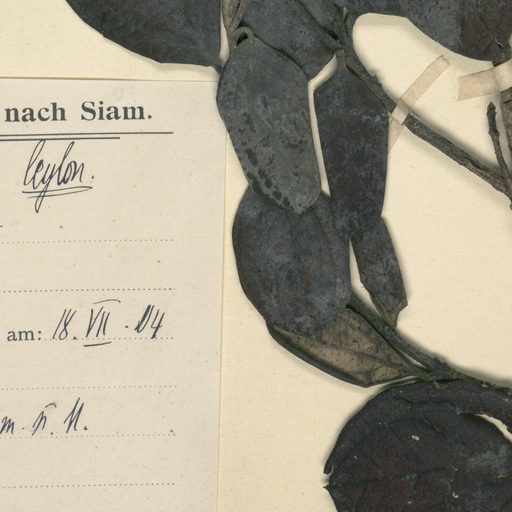 nach Siam.
Ceylon.
am: 18. VII. 04
m. ü. M.